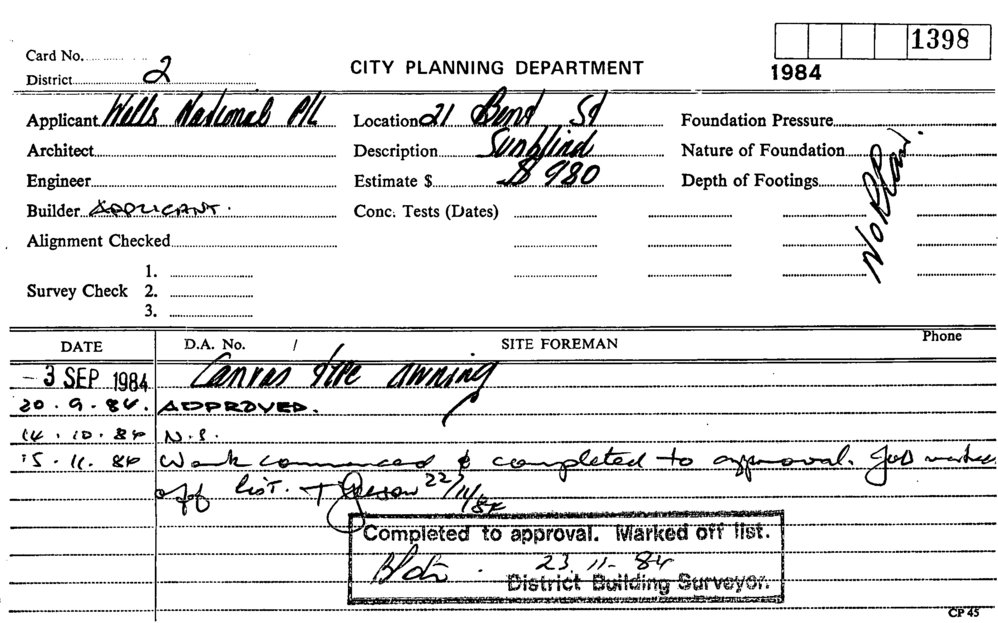 1398
Card No.
District 2
CITY PLANNING DEPARTMENT
1984
Applicant Wells National P/L
Location 21 Bond St
Foundation Pressure
Architect
Description Sunblind
Nature of Foundation
Engineer
Estimate $ $ 980
Depth of Footings
No Plan.
Builder APPLICANT.
Conc. Tests (Dates)
Alignment Checked
1.
Survey Check 2.
3.
DATE D.A. No. / SITE FOREMAN Phone
- 3 SEP 1984 Canvas type awning
20.9.84. APPROVED.
14.10.84 N.S.
15.11.84 Work commenced & completed to approval. Job marked
off list. 22/11/84
Completed to approval. Marked off list.
23.11.84
District Building Surveyor.
CP 45